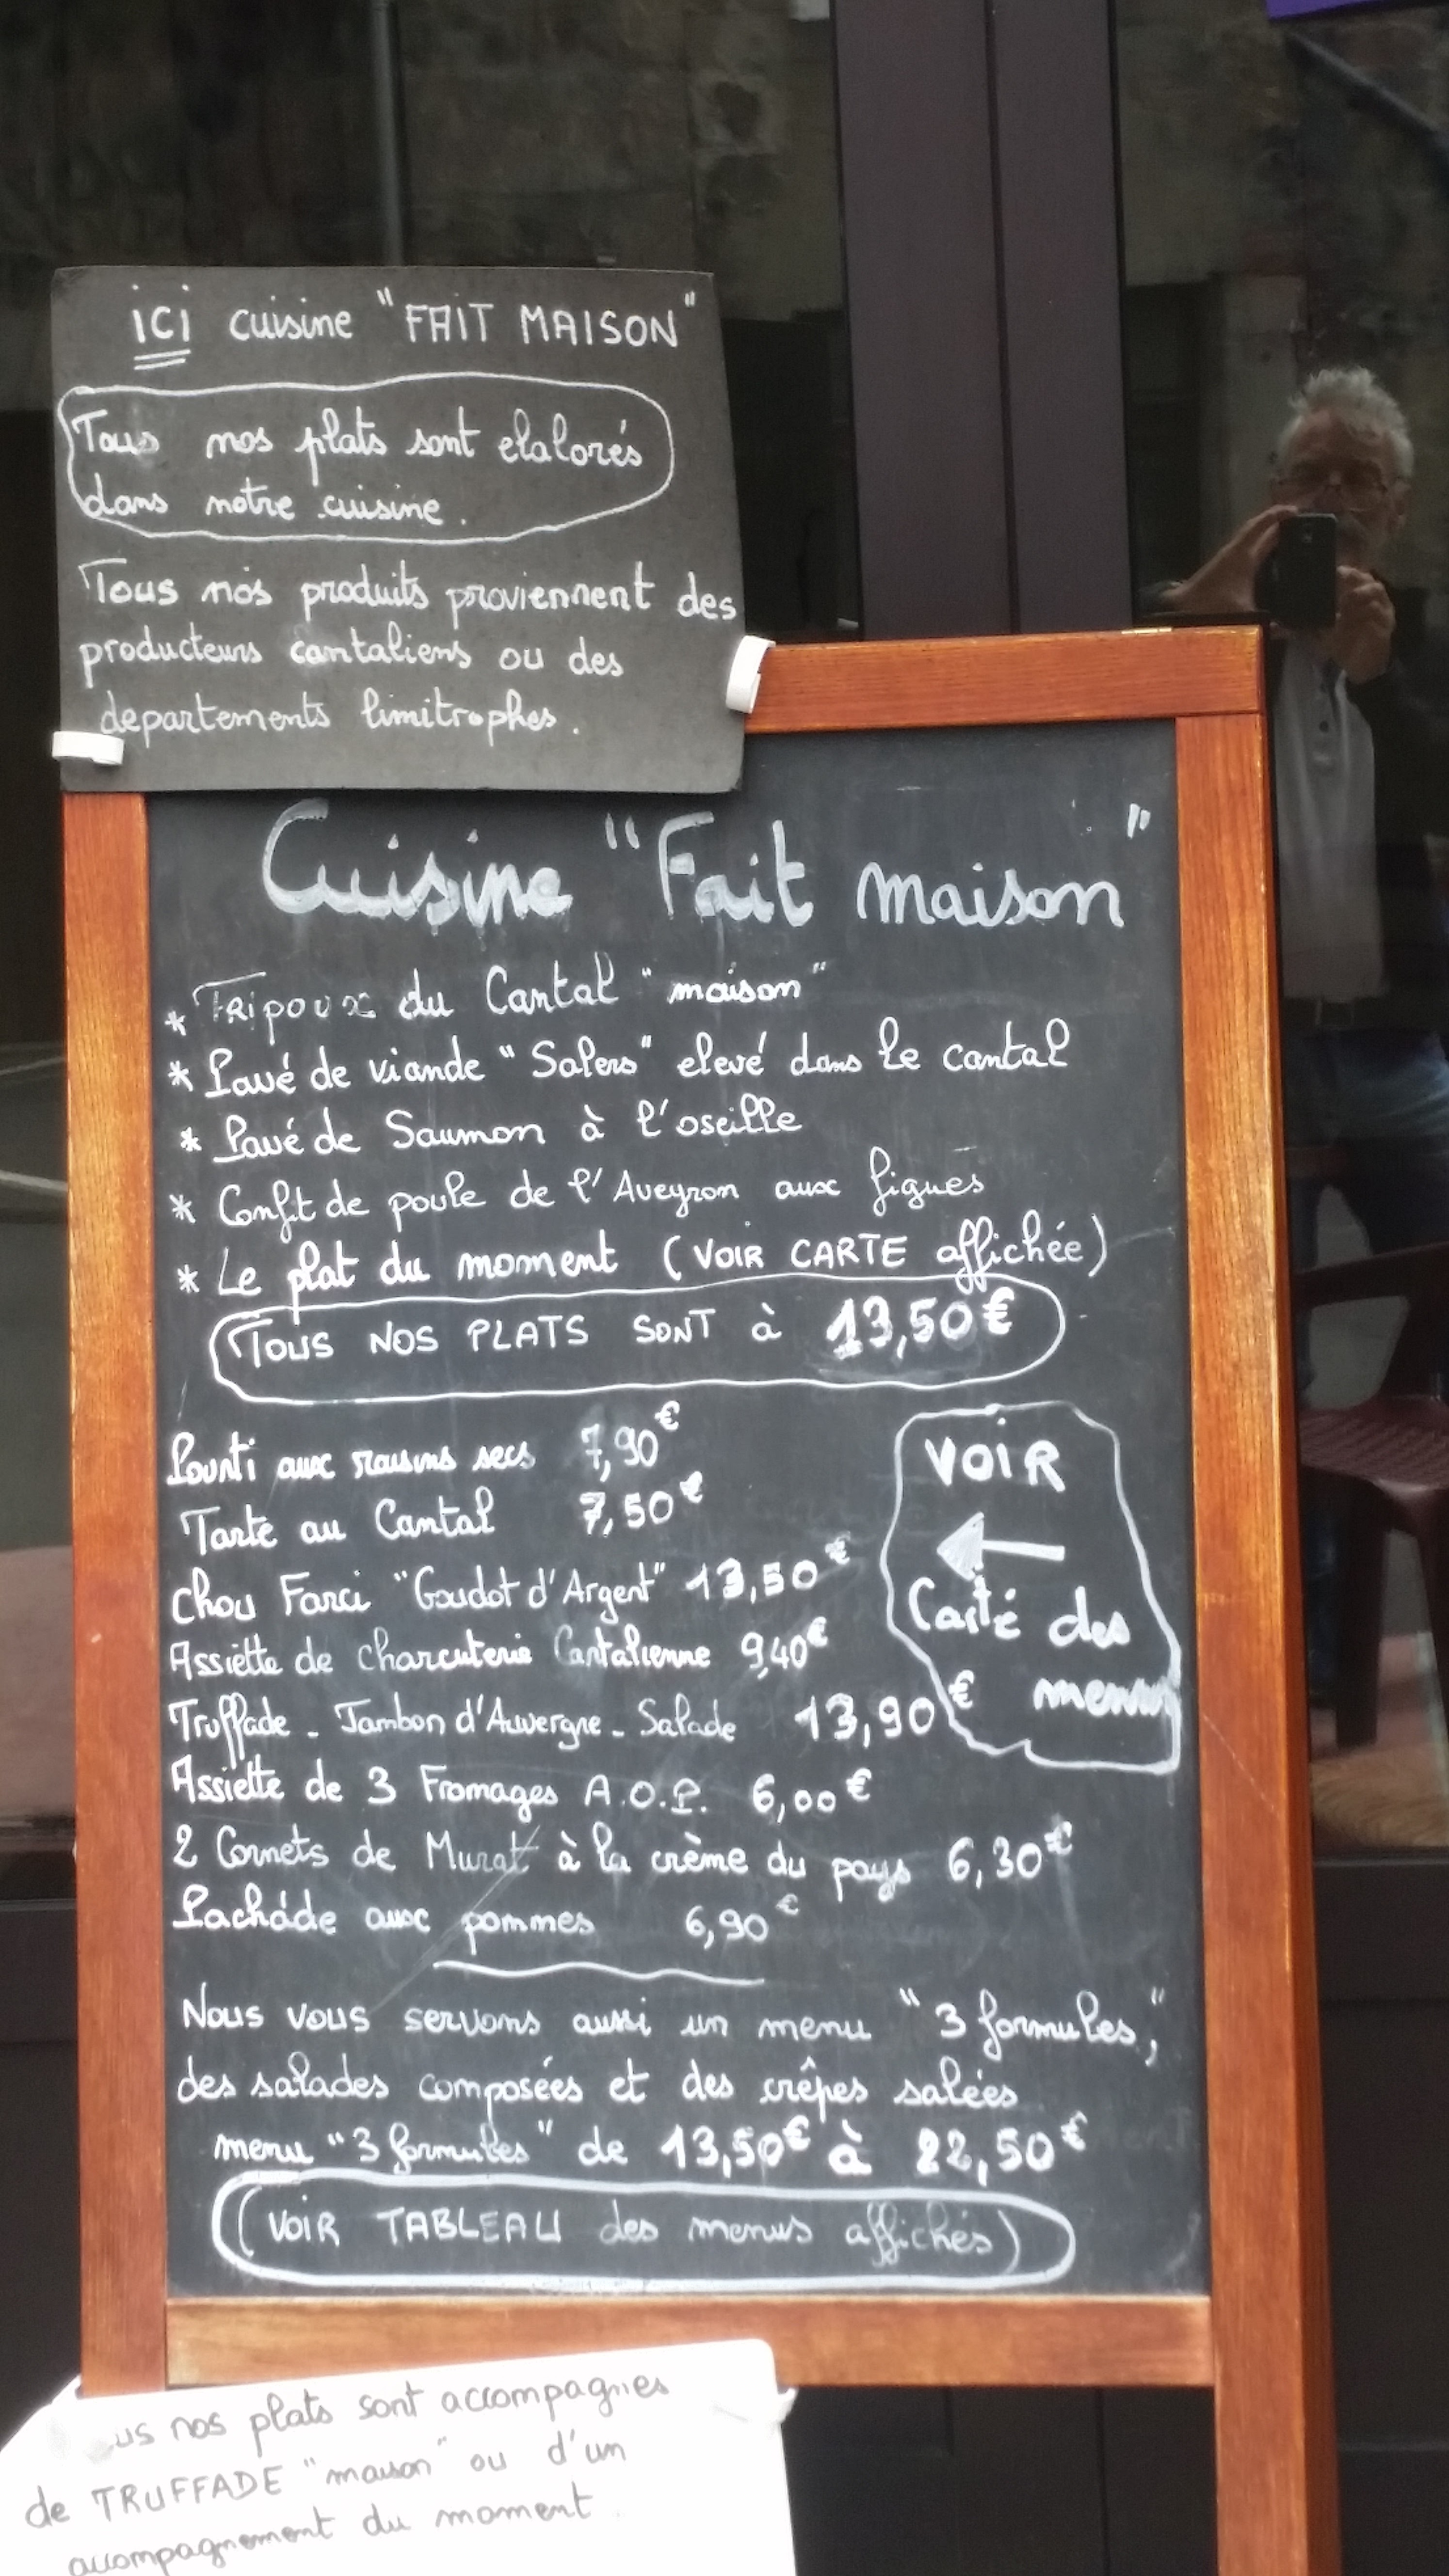 ici cuisine "FAIT MAISON"
Tous nos plats sont elalorés
dans notre cuisine.
Tous nos produits proviennent des
producteurs cantaliens ou des
departements limitrophes.
Cuisine "Fait maison"
* TRipoux du Cantal "maison"
* Pavé de viande "Salers" elevé dans le cantal
* Pavé de Saumon à l'oseille
* Confit de poule de l'Aveyron aux figues
* Le plat du moment (VOIR CARTE affichée)
TOUS NOS PLATS SONT à 13,50€
Pounti aux raisins secs 7,90€
Tarte au Cantal 7,50€
Chou Farci "Goudot d'Argent" 13,50€
Assiette de charcuterie Cantalienne 9,40€
Truffade - Jambon d'Auvergne - Salade 13,90€
Assiette de 3 Fromages A.O.P. 6,00€
2 Cornets de Murat à la crème du pays 6,30€
Pachade aux pommes 6,90€
VOIR
←
Carte des
menus
Nous vous servons aussi un menu "3 formules",
des salades composées et des crêpes salées
menu "3 formules" de 13,50€ à 22,50€
(VOIR TABLEAU des menus affichés)
us nos plats sont accompagnes
de TRUFFADE "maison" ou d'un
accompagnement du moment